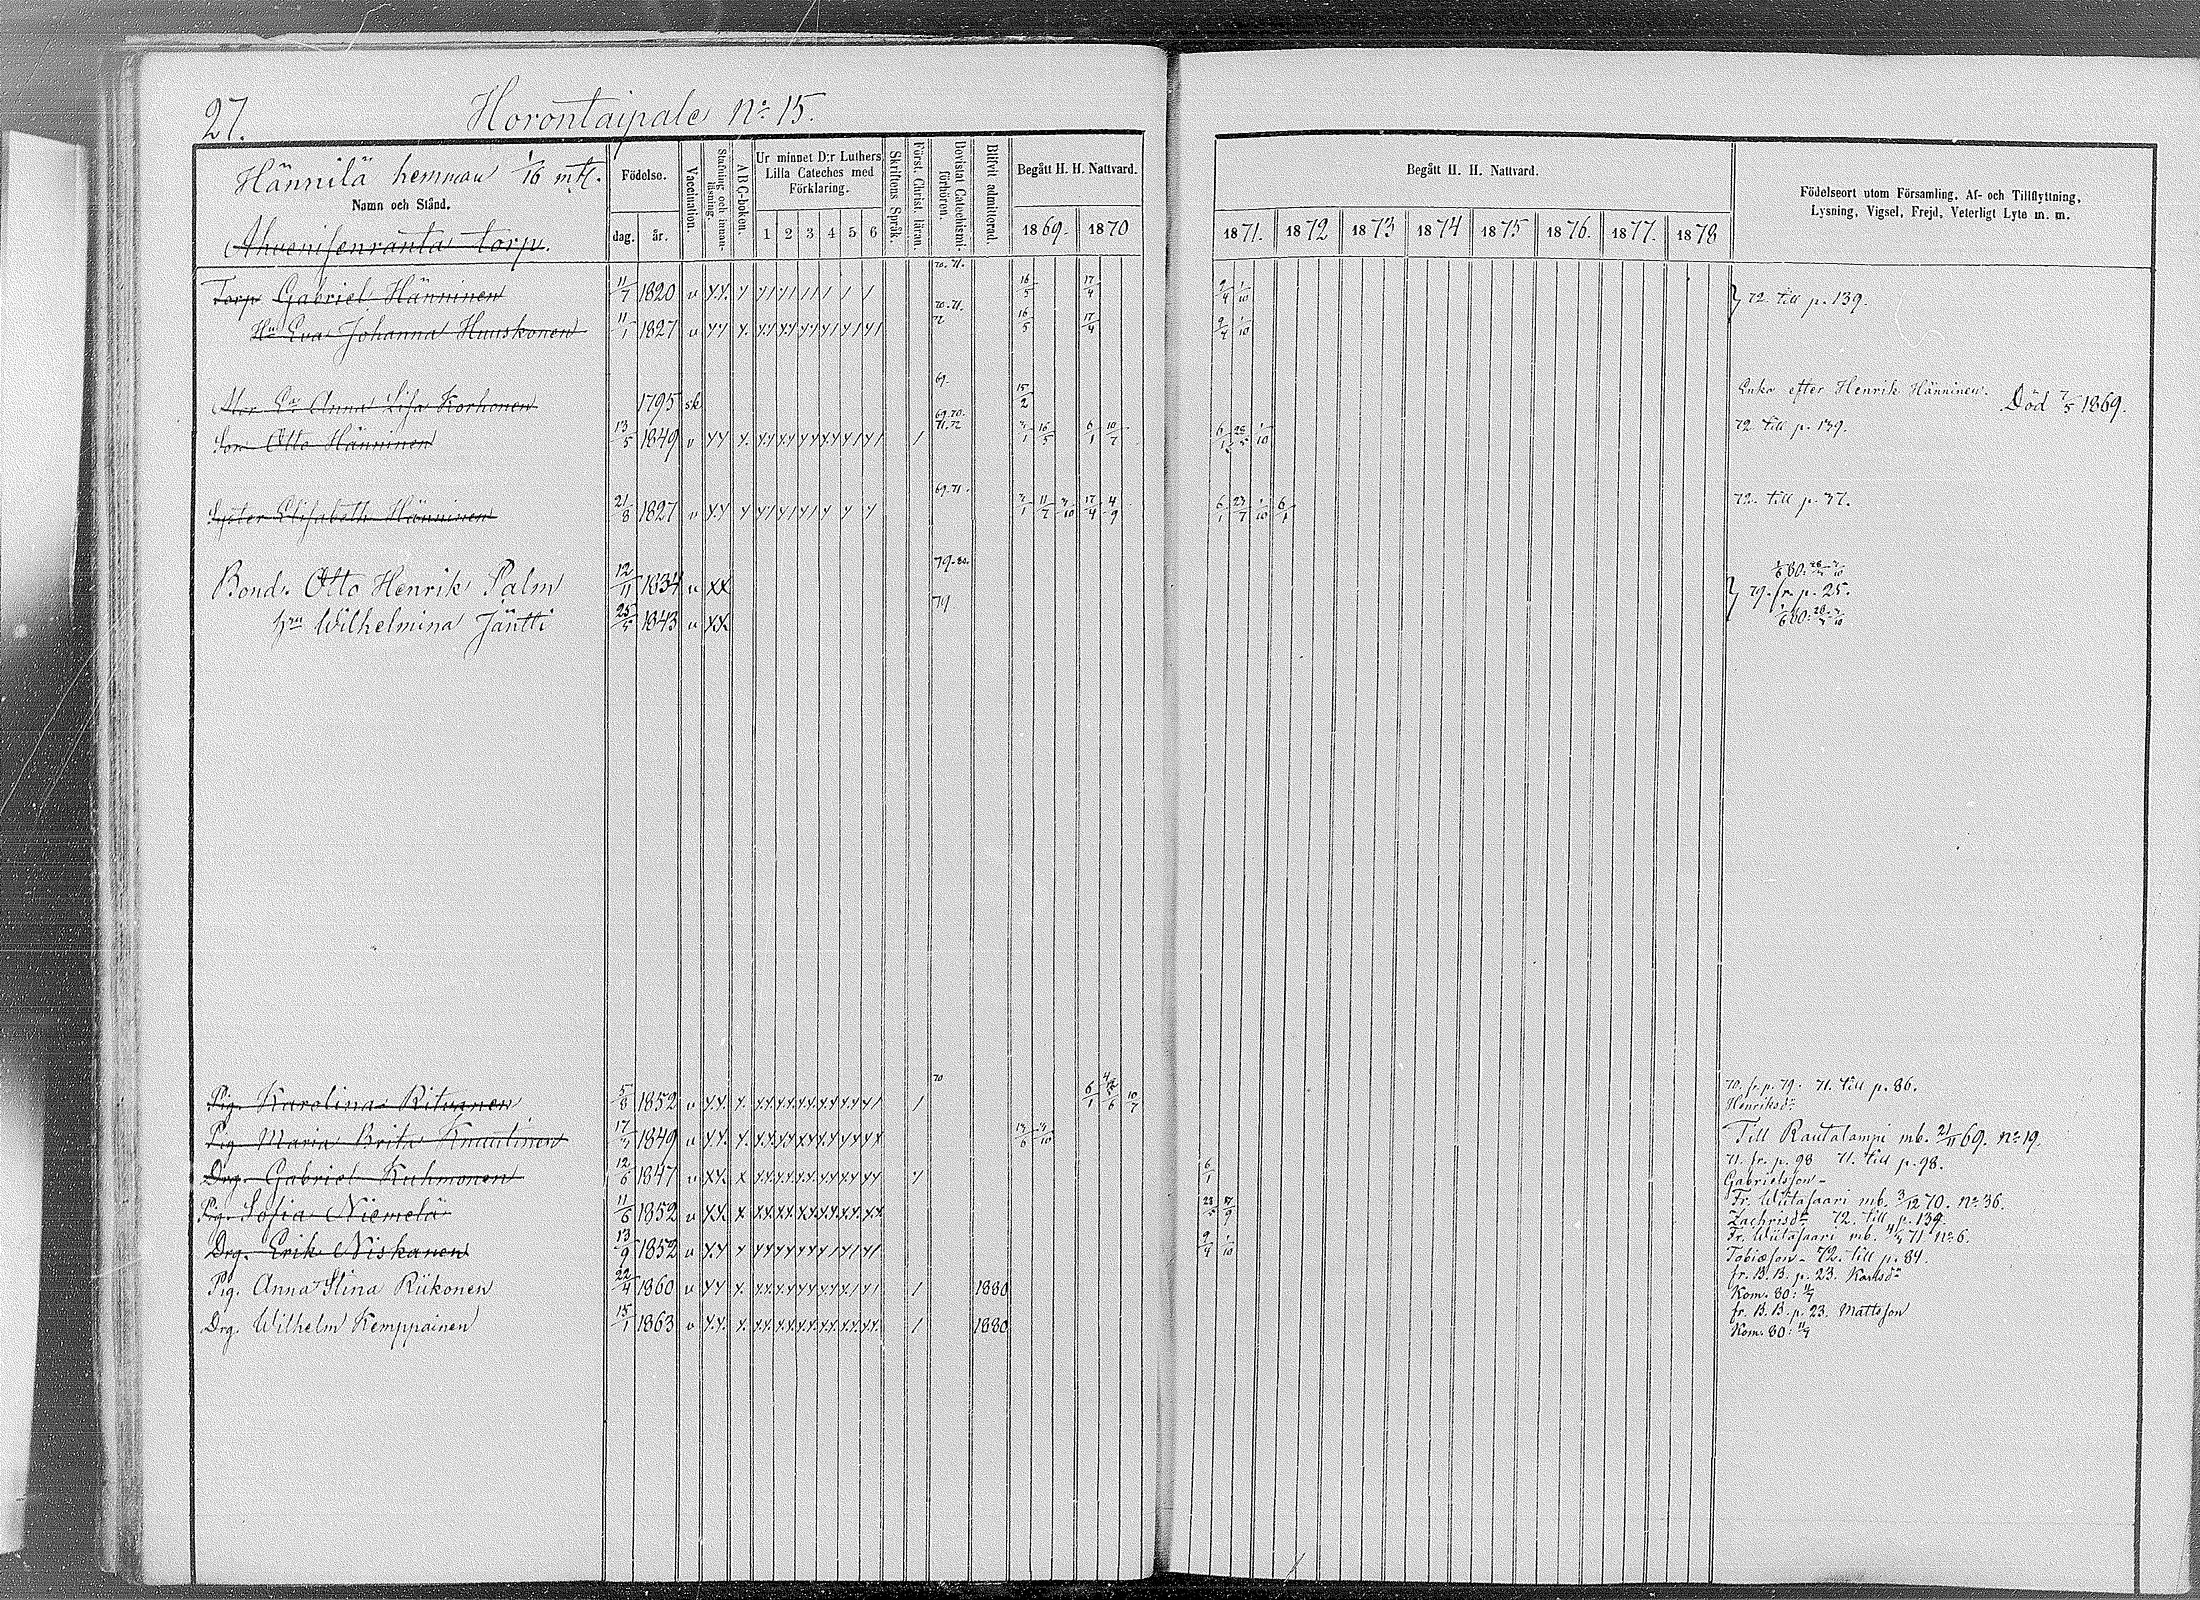 27. Horontaipale No 15.
Hännilä hemman 1/16 mtl.
Namn och Stånd.
Ahvenisenranta torp.
Födelse.
dag. år.
Vaccination.
Stafning och innanläsning.
A B C-boken.
Ur minnet D:r Luthers Lilla Cateches med Förklaring.
1 2 3 4 5 6
Skriftens Språk.
Först. Christ. läran.
Bevistat Catechismi-förhören.
Blifvit admitterad.
Begått H. H. Nattvard.
1869. 1870
Begått H. H. Nattvard.
1871. 1872 1873 1874 1875 1876. 1877. 1878
Födelseort utom Församling, Af- och Tillflyttning,
Lysning, Vigsel, Frejd, Veterligt Lyte m. m.
Torp Gabriel Hänninen 11/7 1820 v 70.71. 16/5 17/4 9/4 1/10 72 till p. 139.
Hu Eva Johanna Huuskonen 11/1 1827 v 70.71. 72 16/5 17/4 9/4 1/10
Mor Anna Lisa Korhonen 1795 sk 69. 15/2 Enka efter Henrik Hänninen. Död 7/5 1869.
Son Otto Hänninen 13/5 1849 v 69.70. 71.72 16/5 6/1 10/7 6/1 28/5 1/10 72 till p. 139.
Syster Elisabeth Hänninen 21/8 1827 v 69.71. 11/7 17/4 4/9 6/1 23/7 1/10 6/1 72. till p. 37.
Bond. Otto Henrik Palm 12/11 1834 v xx 79-80. 79. fr. p. 25.
hru Wilhelmina Jäntti 25/5 1843 v xx 79
Pig. Karolina Ritunen 5/8 1852 v 70 6/1 10/7 70. fr. p. 79. 71. till p. 86.
Henriksdr
Pig. Maria Brita Knuutinen 1849 v Till Rautalampi mb. 21/11 69. No 19.
Drg. Gabriel Kuhmonen 12/6 1847 v 6/1 71. fr. p. 98 71. till p. 98.
Gabrielsson
Pig. Sofia Niemelä 11/6 1852 v 28/5 Fr. Wiitasaari mb. 3/12 70. No 36.
Zachrisdr 72. till p. 139.
Drg. Erik Niskanen 13/9 1852 v 9/4 1/10 Fr. Wiitasaari mb. 71 No 6.
Tobiasson 72. till p. 84.
Pig. Anna Stina Riikonen 22/4 1860 v 1880 fr. B.B. p. 23. Karlsdr
Kom. 80:
Drg. Wilhelm Kemppainen 15/1 1863 v 1880 fr. B.B. p. 23. Mattsson
Kom. 80: